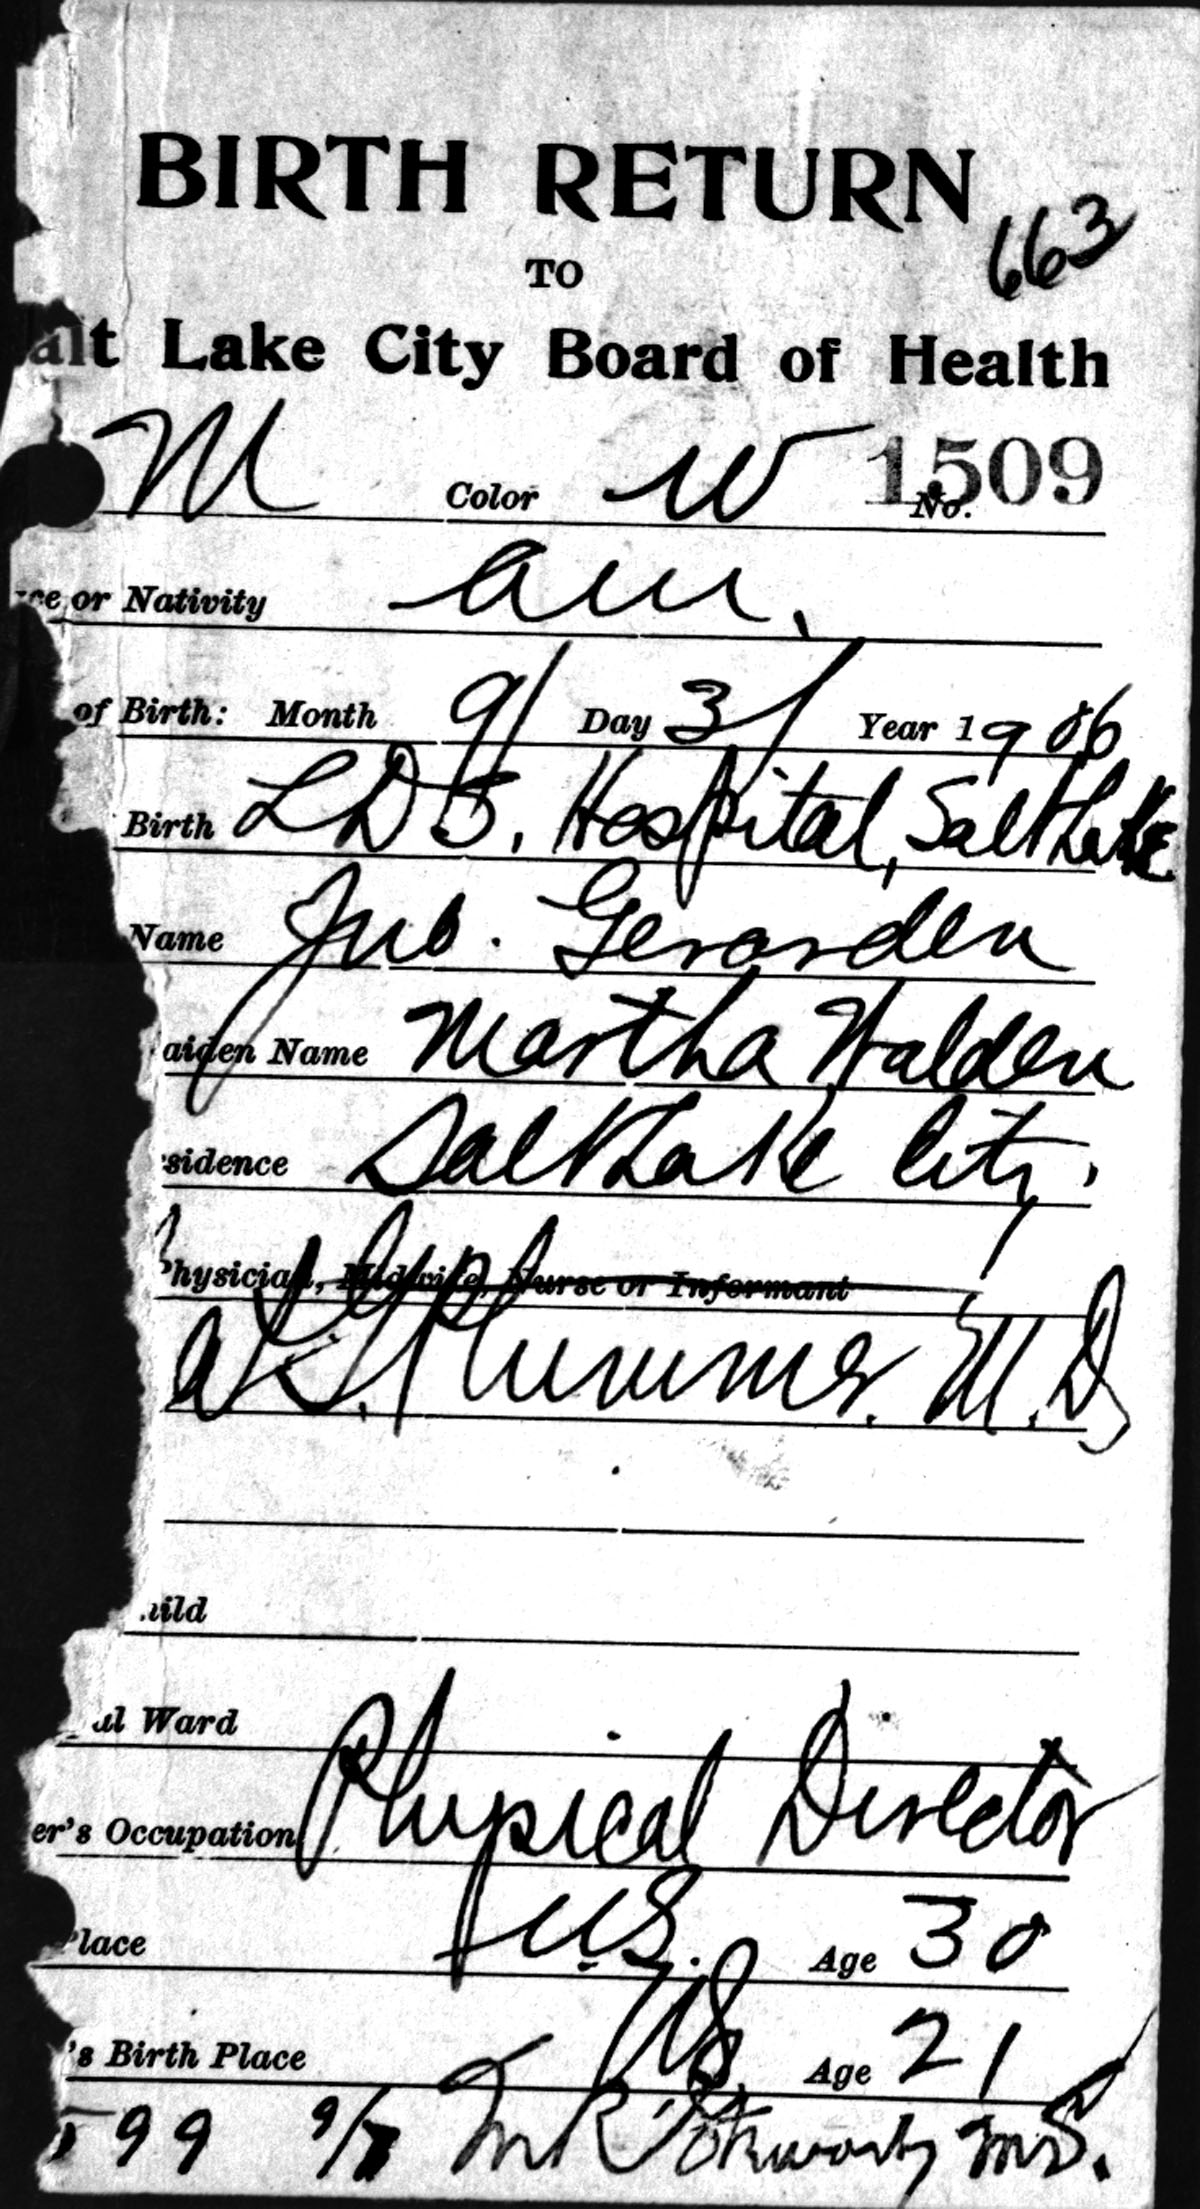 BIRTH RETURN
663
TO
alt Lake City Board of Health
M Color W No. 1509
ce or Nativity am.
of Birth: Month 9/ Day 31 Year 1906
Birth L D S. Hospital, Salt Lake
Name Jno. Gerarden
aiden Name Martha Walden
sidence Salt Lake City.
Physician, Midwife, Nurse or Informant
Plummer. M.D.
hild
al Ward
er's Occupation Physical Director
Place U.S. Age 30
's Birth Place U.S. Age 21
99 9/7